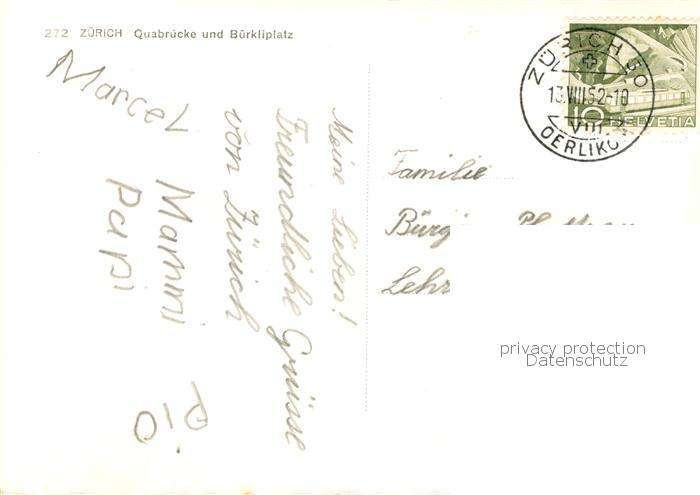 272 ZÜRICH Quabrücke und Bürkliplatz
Meine Lieben!
Freundliche Grüsse
von Zürich
Marcel
Mamini
Papi
Pio
Familie
Bürg
Lehr
ZÜRICH 50
13.VIII.52-10
VIII.
OERLIKO
10 HELVETIA
privacy protection
Datenschutz